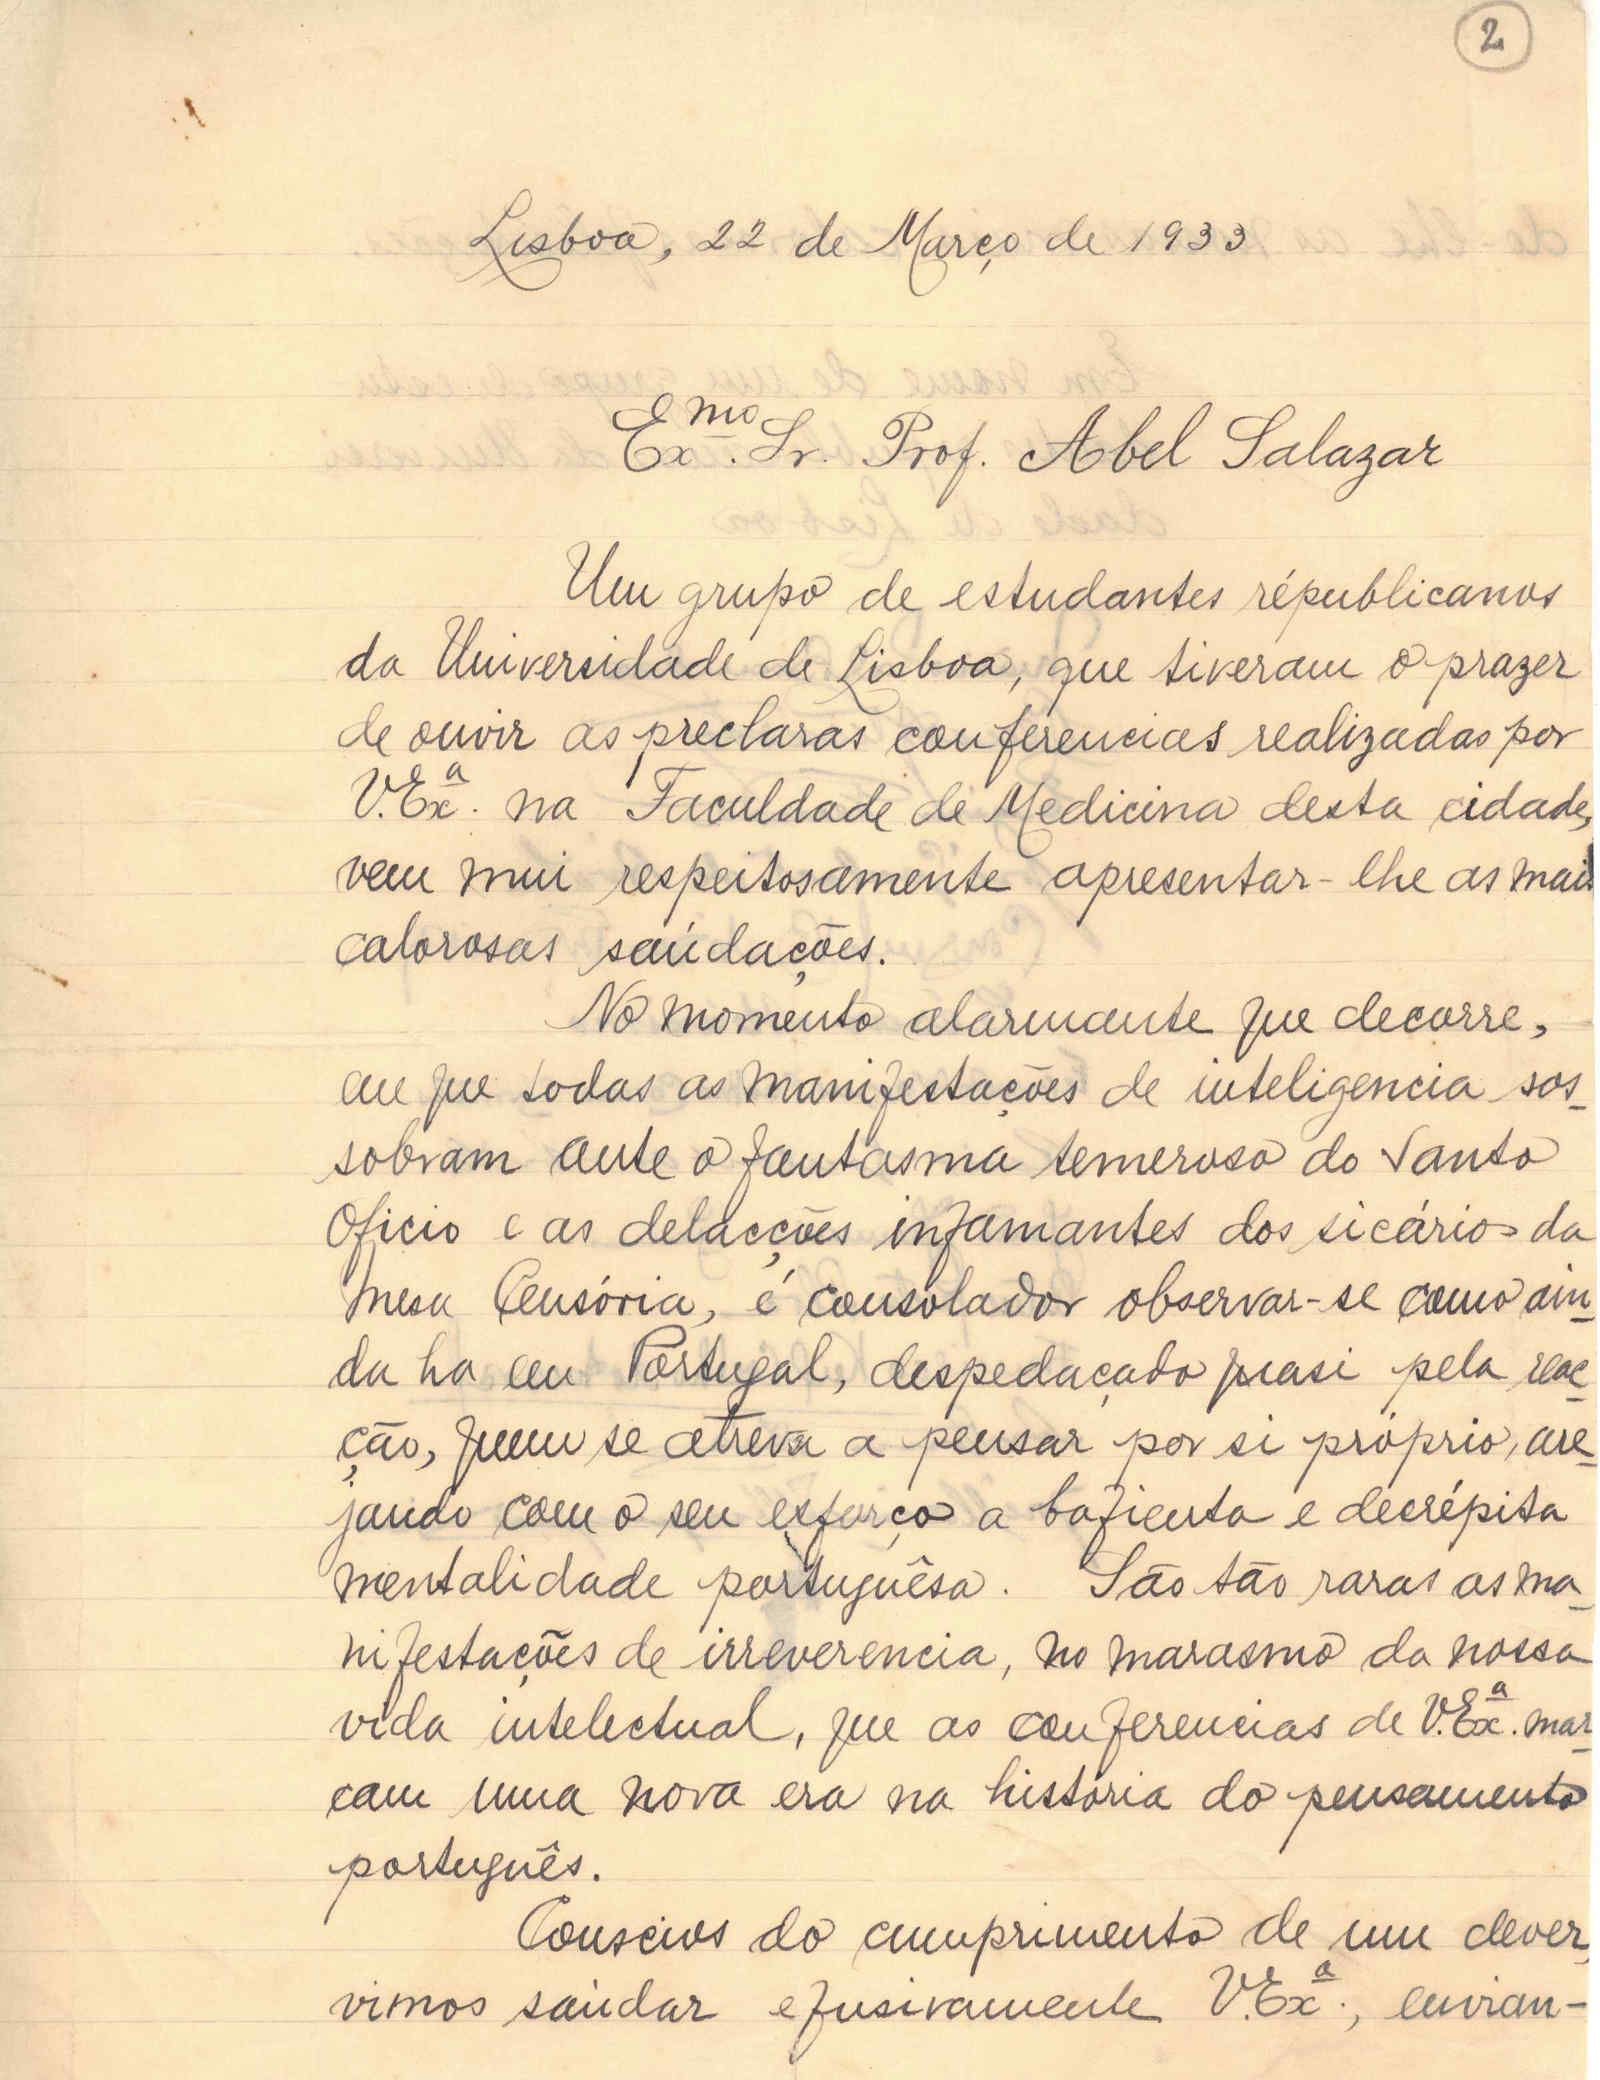 2
Lisboa, 22 de Março de 1933
Exmo. Sr. Prof. Abel Salazar
Um grupo de estudantes républicanos
da Universidade de Lisboa, que tiveram o prazer
de ouvir as preclaras conferencias realizadas por
V. Exa. na Faculdade de Medicina desta cidade,
vem mui respeitosamente apresentar-lhe as mais
calorosas saúdações.
No momento alarmante que decorre,
em que todas as manifestações de inteligencia sos-
sobram ante o fantasma temeroso do Santo
Oficio e as delacções infamantes dos sicários da
Mesa Censória, é consolador observar-se como ain-
da ha em Portugal, despedaçado quasi pela reac-
ção, quem se atreva a pensar por si próprio, are-
jando com o seu esforço a bafienta e decrépita
mentalidade portuguêsa. São tão raras as ma-
nifestações de irreverencia, no marasmo da nossa
vida intelectual, que as conferencias de V. Exa. mar-
cam uma nova era na história do pensamento
português.
Conscios do cumprimento de um dever,
vimos saúdar efusivamente V. Exa., envian-